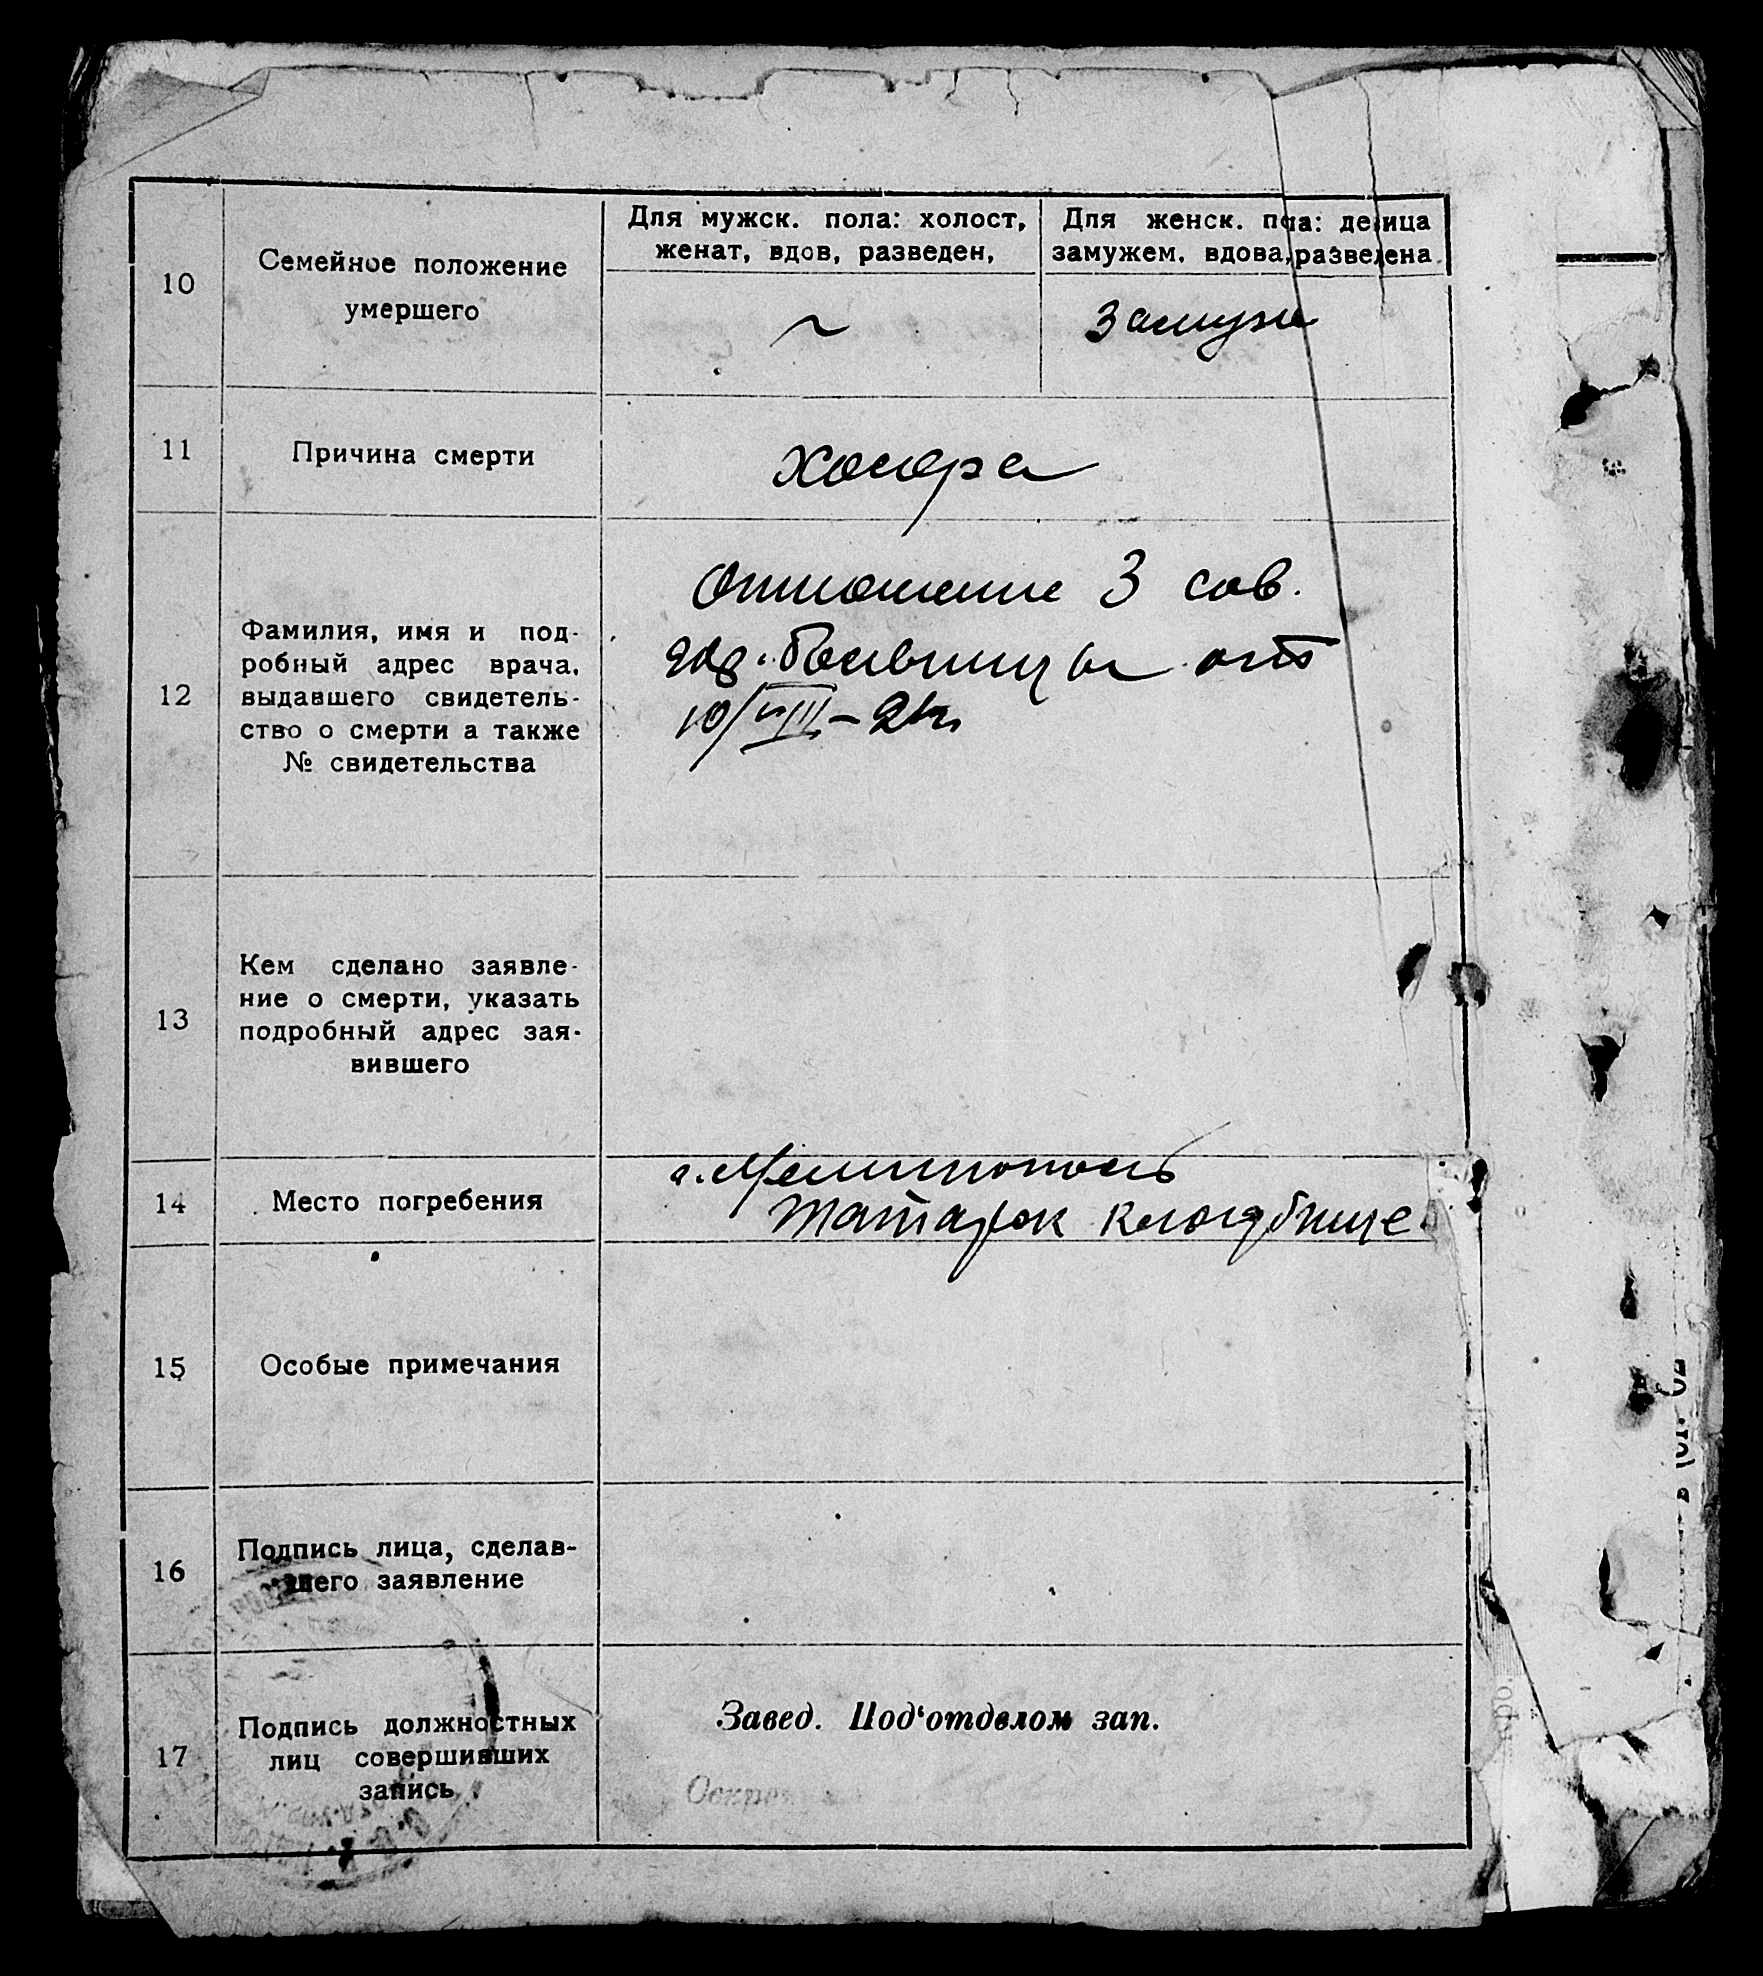 10
Семейное положение
умершего
Для мужск. пола: холост,
женат, вдов, разведен,
Для женск. пола: девица
замужем. вдова, разведена
~
Замуж
11
Причина смерти
холера
12
Фамилия, имя и под-
робный адрес врача,
выдавшего свидетель-
ство о смерти а также
№ свидетельства
Отношение 3 сов.
больницы от
10/VIII-21г.
13
Кем сделано заявле-
ние о смерти, указать
подробный адрес зая-
вившего
14
Место погребения
г. Мелитополь
Татарск кладбище
15
Особые примечания
16
Подпись лица, сделав-
шего заявление
17
Подпись должностных
лиц совершивших
запись
Завед. Под‘отделом зап.